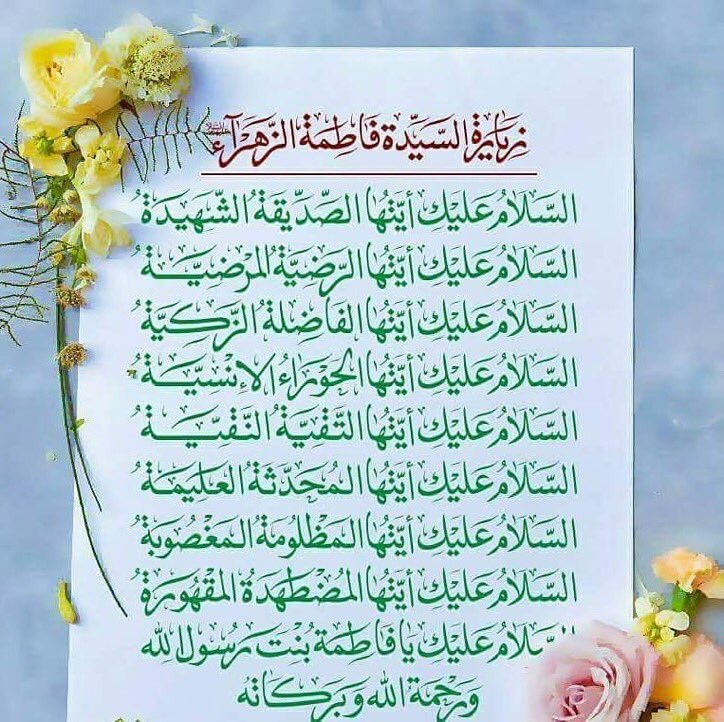 زيارة السيدة فاطمة الزهراء
السَّلَامُ عَلَيْكِ أيَّتُهَا الصِّدِّيقَةُ الشَّهِيدَةُ
السَّلَامُ عَلَيْكِ أيَّتُهَا الرَّضِيَّةُ المَرْضِيَّةُ
السَّلَامُ عَلَيْكِ أيَّتُهَا الفَاضِلَةُ الزَّكِيَّةُ
السَّلَامُ عَلَيْكِ أيَّتُهَا الحَوْرَاءُ الإِنْسِيَّةُ
السَّلَامُ عَلَيْكِ أيَّتُهَا التَّقِيَّةُ النَّقِيَّةُ
السَّلَامُ عَلَيْكِ أيَّتُهَا المُحَدَّثَةُ العَلِيمَةُ
السَّلَامُ عَلَيْكِ أيَّتُهَا المَظْلُومَةُ المَغْصُوبَةُ
السَّلَامُ عَلَيْكِ أيَّتُهَا المُضْطَهَدَةُ المَقْهُورَةُ
السَّلَامُ عَلَيْكِ يَا فَاطِمَةُ بِنْتَ رَسُولِ اللّٰهِ
وَرَحْمَةُ اللّٰهِ وَبَرَكَاتُهُ